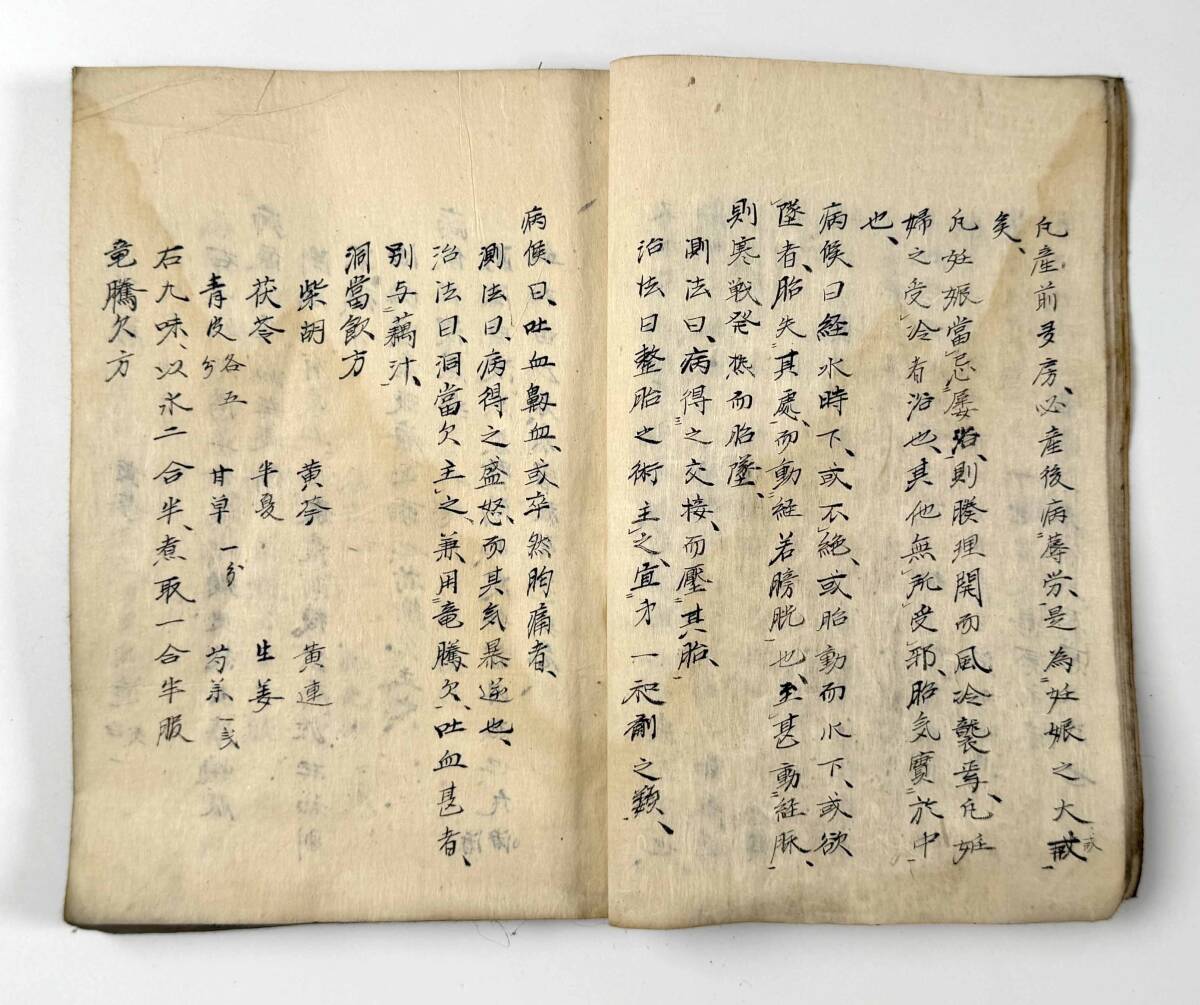 凡産前多房、必産後病蓐労、是為妊娠之大戒
矣、
凡妊娠當忌屡浴、則腠理開而風冷襲焉、凡妊
婦之受冷者浴也、其他無所受邪、胎気實於中
也、
病候曰経水時下、或不絶、或胎動而爪下、或欲
墜者、胎失其處、而動経若膀胱也、至甚動経脈、
則寒戦発热而胎墜、
測法曰、病得之交接、而壓其胎、
治法曰整胎之術主之、宜才一和剤之類、
病候曰、吐血衂血、或卒然胸痛者、
測法曰、病得之盛怒、而其気暴逆也、
治法曰、洞當欠主之、兼用竜騰欠、吐血甚者、
别与藕汁、
洞當飲方
柴胡 黄芩 黄連
茯苓 半夏 生姜
青皮各五分 甘草一分 芍薬一戋
右九味、以水二合半、煮取一合半服
竜騰欠方